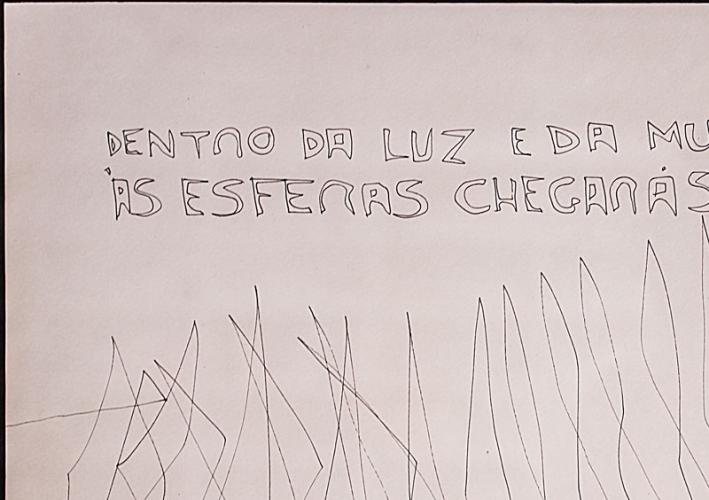 DENTRO DA LUZ E DA MU
ÀS ESFERAS CHEGARÁS